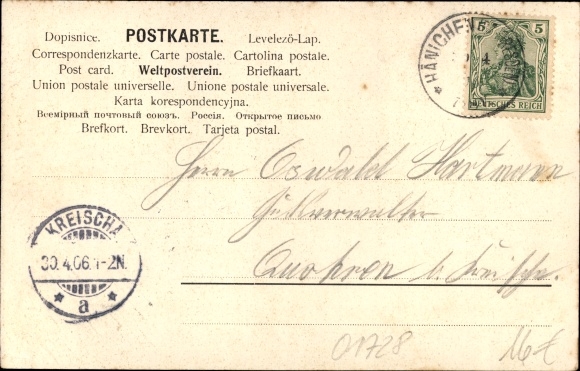 Dopisnice. POSTKARTE. Levelező-Lap.
Correspondenzkarte. Carte postale. Cartolina postale.
Post card. Weltpostverein. Briefkaart.
Union postale universelle. Unione postale universale.
Karta korespondencyjna.
Всемірный почтовый союзъ. Россія. Открытое письмо
Brefkort. Brevkort. Tarjeta postal.
5 5
DEUTSCHES REICH
* HÄNICHEN
Herrn Oswald Hartmann
Gutsverwalter
Quohren b. Kreischa
KREISCHA
30.4.06.1-2N.
* a *
01728
16€